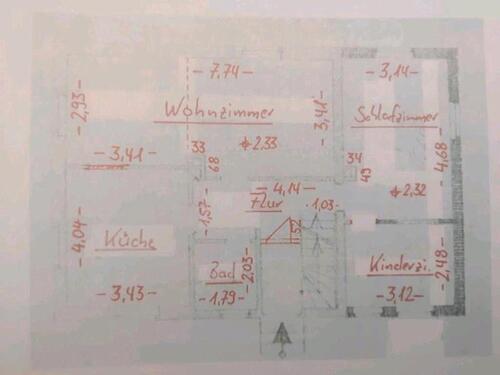 - 7,74 -
- 3,14 -
- 2,93 -
Wohnzimmer
- 3,41 -
Schlafzimmer
2.33
- 3,41 -
33
68
34
49
- 4,68 -
- 4,14 -
2,32
Flur
- 1,57 -
· 1,03 ·
52
- 4,04 -
Küche
Bad
- 2,03 -
Kinderzi.
- 2,48 -
- 3,43 -
- 1,79 -
- 3,12 -